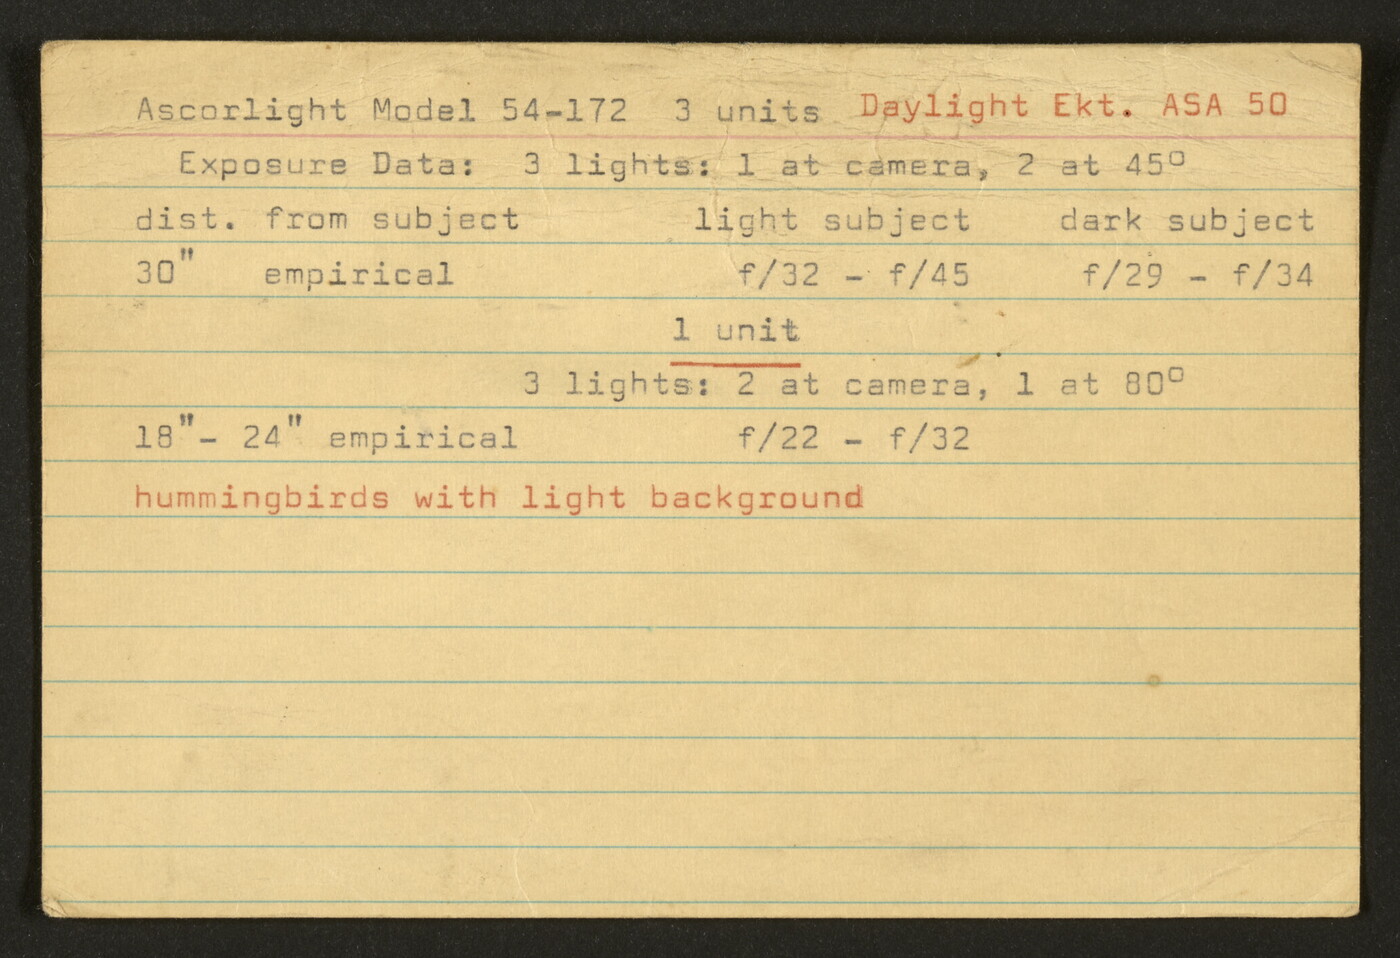 Ascorlight Model 54-172 3 units Daylight Ekt. ASA 50
Exposure Data: 3 lights: 1 at camera, 2 at 45º
dist. from subject light subject dark subject
30" empirical f/32 - f/45 f/29 - f/34
1 unit
3 lights: 2 at camera, 1 at 80º
18"- 24" empirical f/22 - f/32
hummingbirds with light background